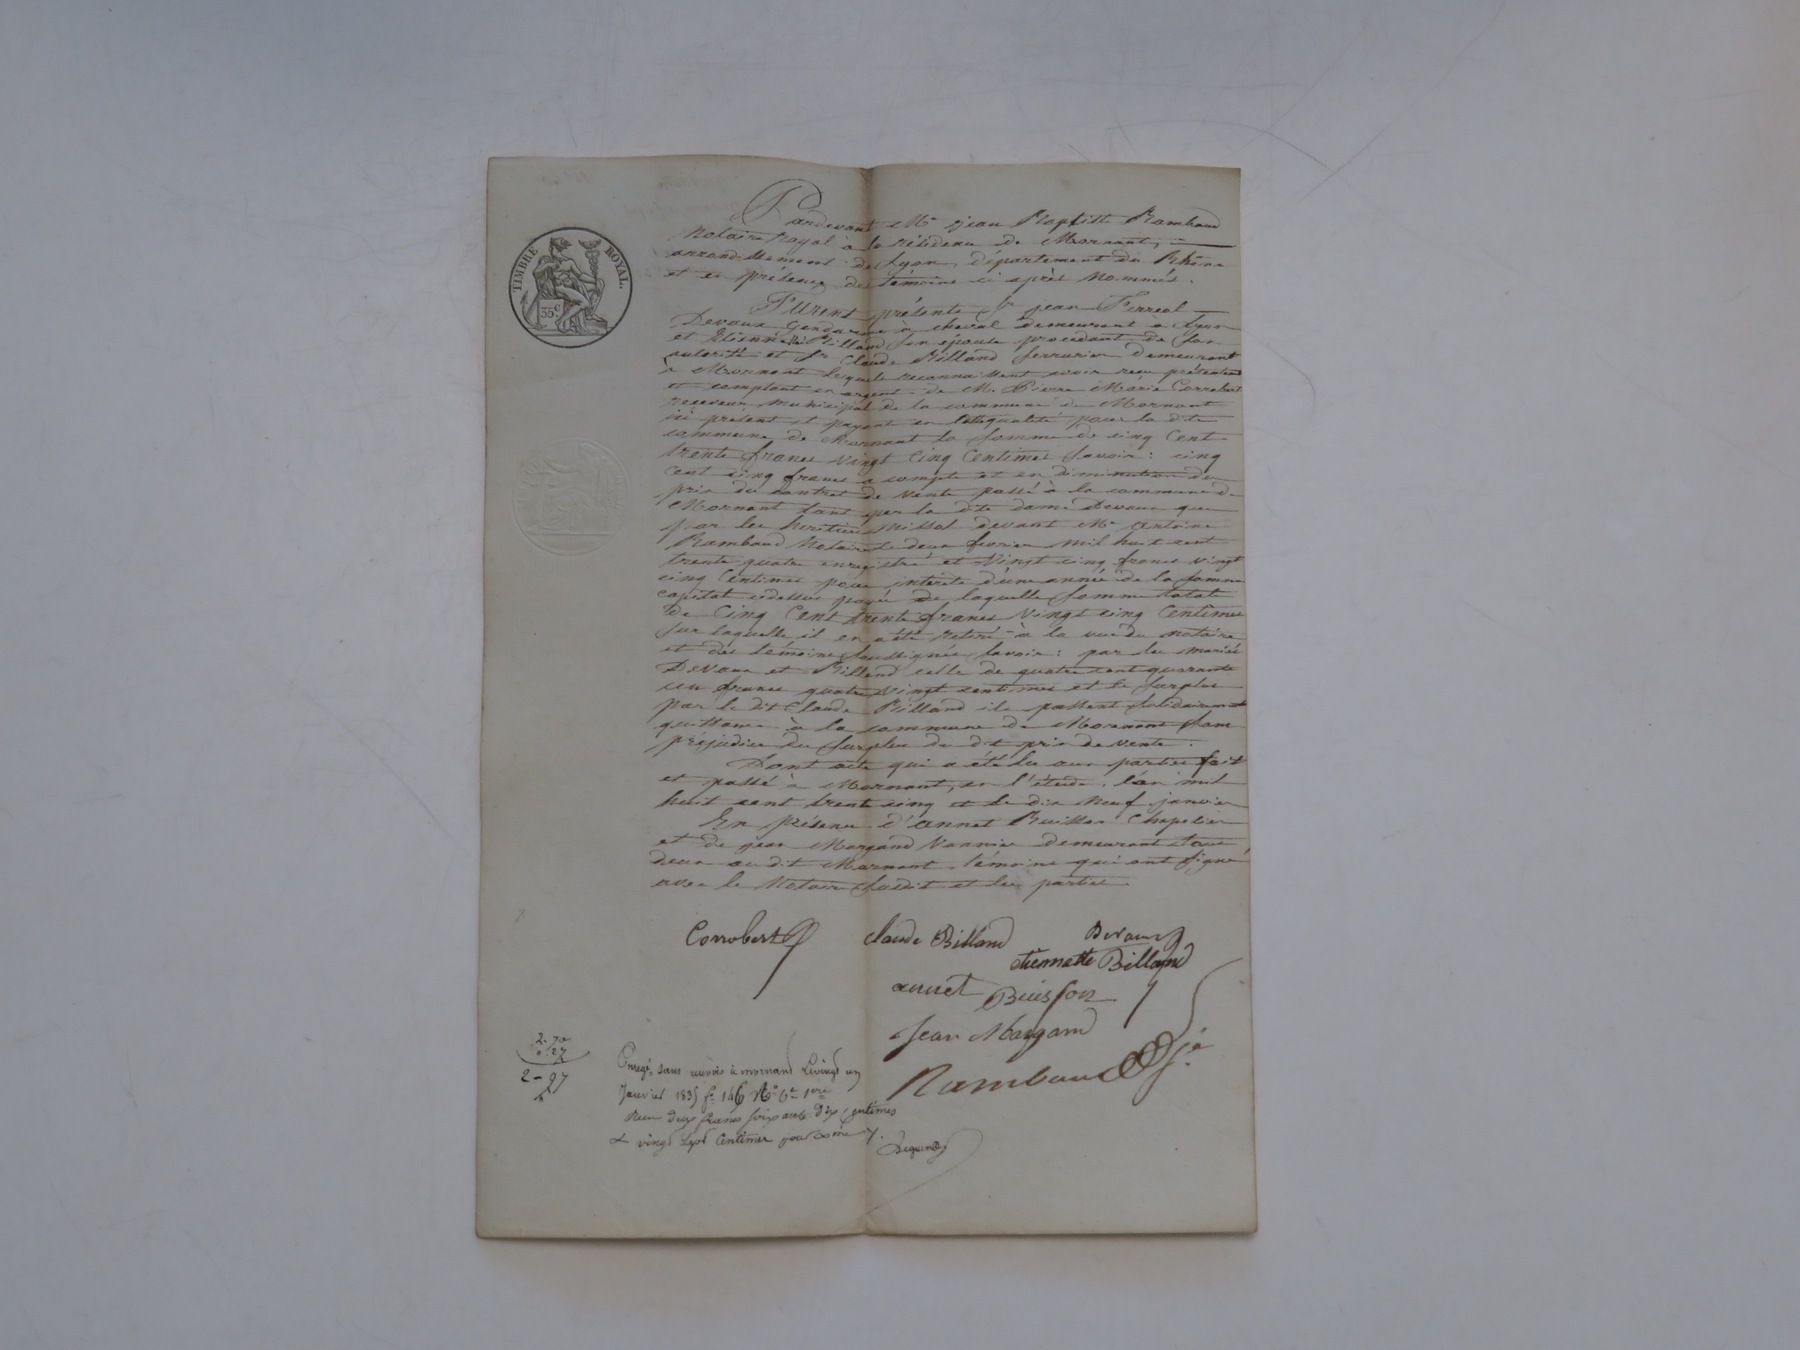 TIMBRE ROYAL.
35 c.
Pardevant Me jean Baptiste Rambaud
Notaire Royal à la résidence de Mornant,
arrondissement de Lyon, département du Rhône
et en présence des témoins ci après nommés.
Furent présents Sr jean Ferreol
Devaux Gendarme à cheval demeurant à Lyon
et Etiennette Billand son épouse procédant de son
autorité et Sr Claude Billand serrurier demeurant
à Mornant lesquels reconnaissent avoir reçu présentement
et comptant en argent de M. Pierre Marie Corrobert
receveur municipal de la commune de Mornant
ici présent et payant en cette qualité pour la dite
commune de Mornant la somme de cinq cent
trente francs vingt cinq centimes savoir : cinq
cent cinq francs a compte et en diminution du
prix du contrat de vente passé à la commune de
Mornant tant par la dite dame Devaux que
par les heritiers devant Me antoine
Rambaud Notaire le deux fevrier mil huit cent
trente quatre enregistré et vingt cinq francs vingt
cinq centimes pour intérêts d'une année de la somme
capital cidessus payée de laquelle somme totale
de cinq cent trente francs vingt cinq centimes
sur laquelle il en a été retiré à la vue du notaire
et des témoins soussignés savoir : par les mariés
Devaux et Billand celle de quatre cent quarante
un francs quatre vingt centimes et le surplus
par le dit Claude Billand ils passent solidairement
quittance à la commune de Mornant sans
préjudice du surplus du dit prix de vente.
Dont acte qui a été lu aux parties fait
et passé à Mornant, en l'étude, l'an mil
huit cent trente cinq et le dix neuf janvier
En présence d'annet Buisson Chapelier
et de jean Margand Vannier demeurant tous
deux au dit Mornant témoins qui ont signé
avec le Notaire susdit et les parties
Corrobert Claude Billand Devaux
etiennette Billand
annet Buisson
Jean Margand
Rambaud
2-70
0.27
2-97
Enregé. sans renvois à mornant le vingt un
Janvier 1835 fo 146 Ro Ce 1ere
Reçu deux francs soixante dix centimes
& vingt sept centimes pour Xme